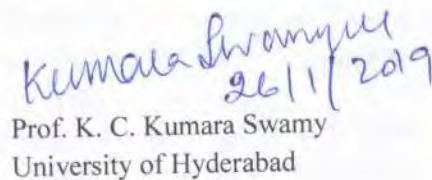 Kumara Swamy
26/1/2019
Prof. K. C. Kumara Swamy
University of Hyderabad